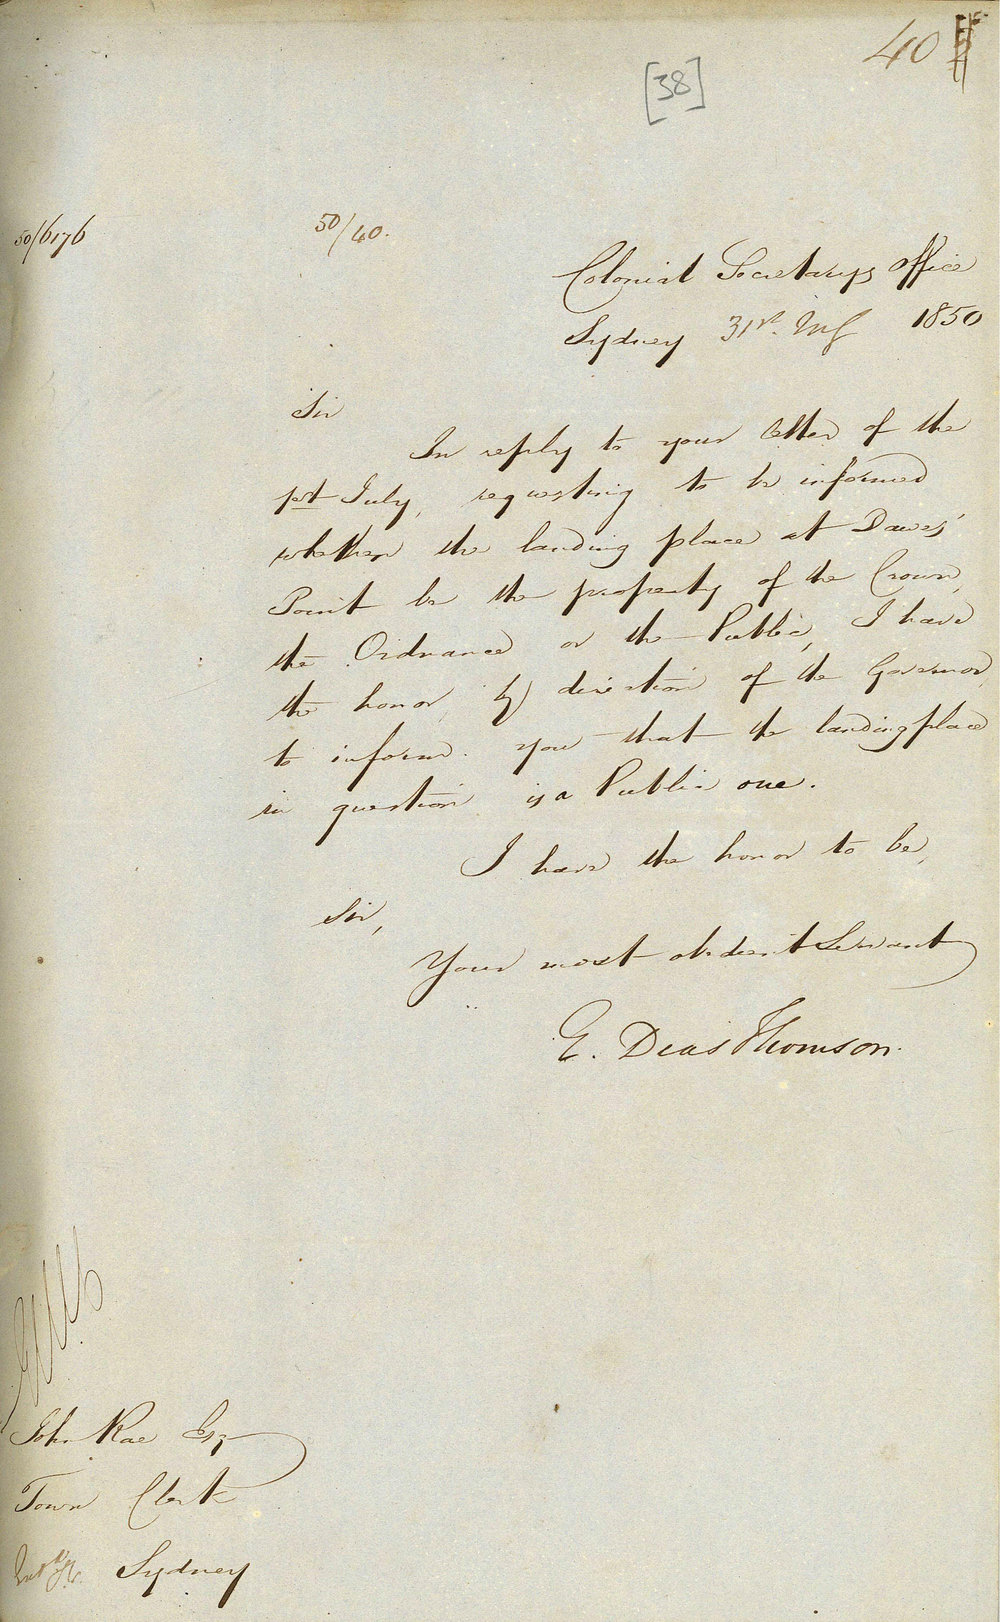 40
[38]
50/6176
50/40.
Colonial Secretarys Office
Sydney 31st. 1850
Sir
In reply to your letter of the
1st July, requesting to be informed
whether the landing place at Dawes'
Point be the property of the Crown,
the Ordnance or the Public, I have
the honor, by direction of the Governor,
to inform you that the landing place
in question is a Public one.
I have the honor to be,
Sir,
Your most obedient Servant
E. Deas Thomson.
John Rae Esq
Town Clerk
Sydney